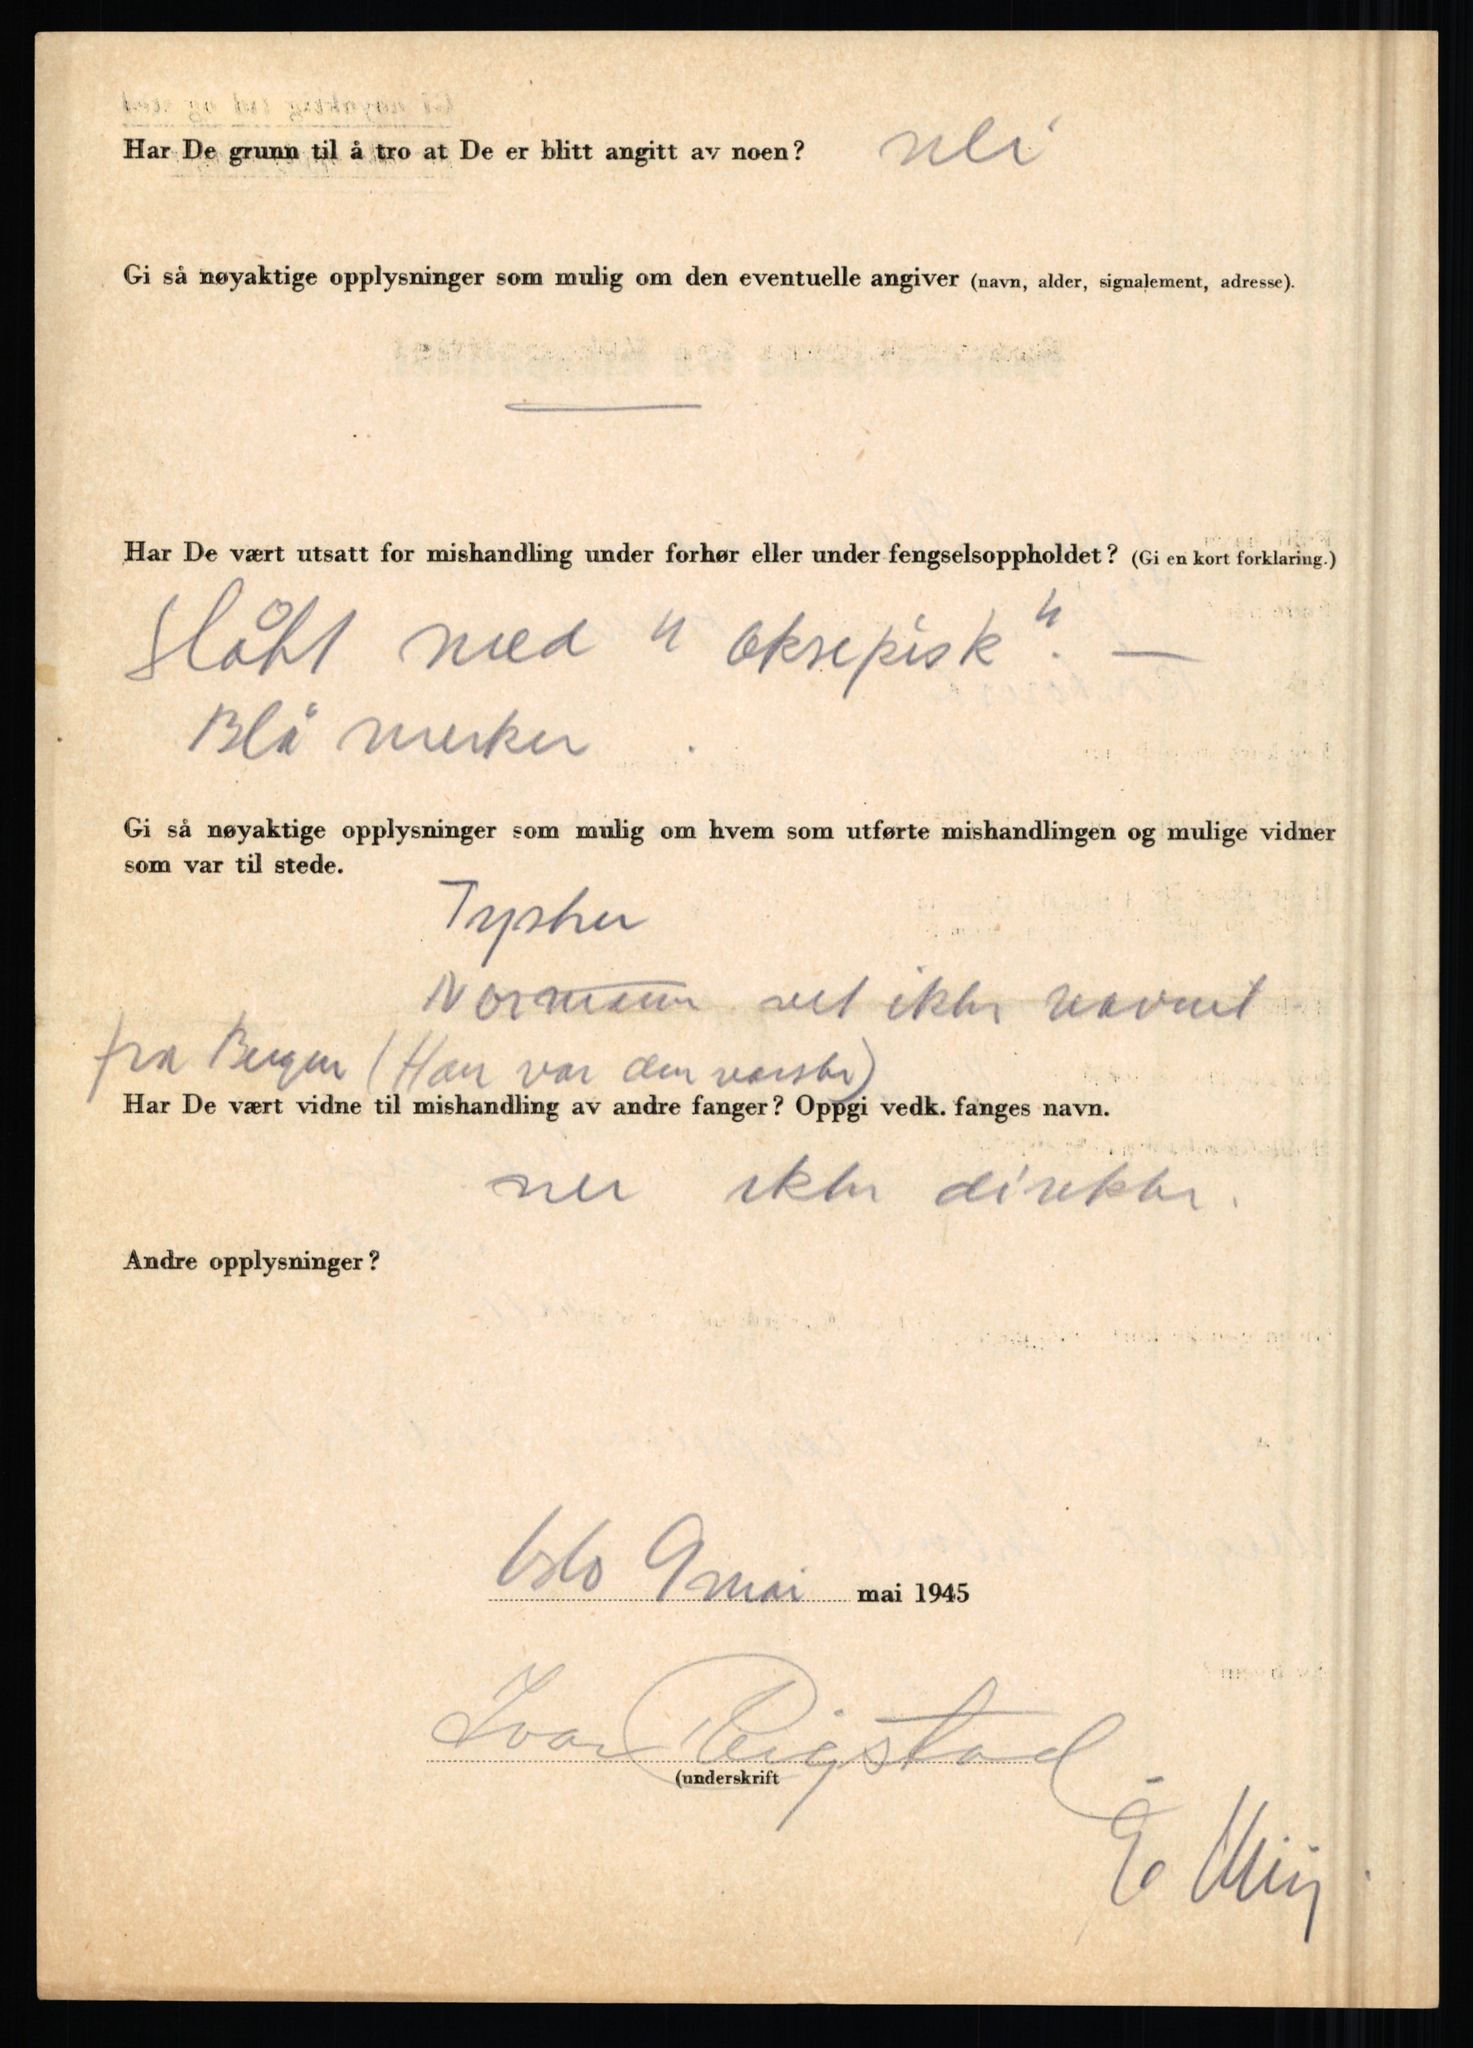 Har De grunn til å tro at De er blitt angitt av noen? nei
Gi så nøyaktige opplysninger som mulig om den eventuelle angiver (navn, alder, signalement, adresse).
Har De vært utsatt for mishandling under forhør eller under fengselsoppholdet? (Gi en kort forklaring.)
Slått med "oksepisk". —
Blå merker.
Gi så nøyaktige opplysninger som mulig om hvem som utførte mishandlingen og mulige vidner
som var til stede.
Tysker
Normann vet ikke navnet
fra Bergen (Han var den værste)
Har De vært vidne til mishandling av andre fanger? Oppgi vedk. fanges navn.
nei ikke direkte.
Andre opplysninger?
Oslo 9 mai mai 1945
Ivar Reigstad
(underskrift